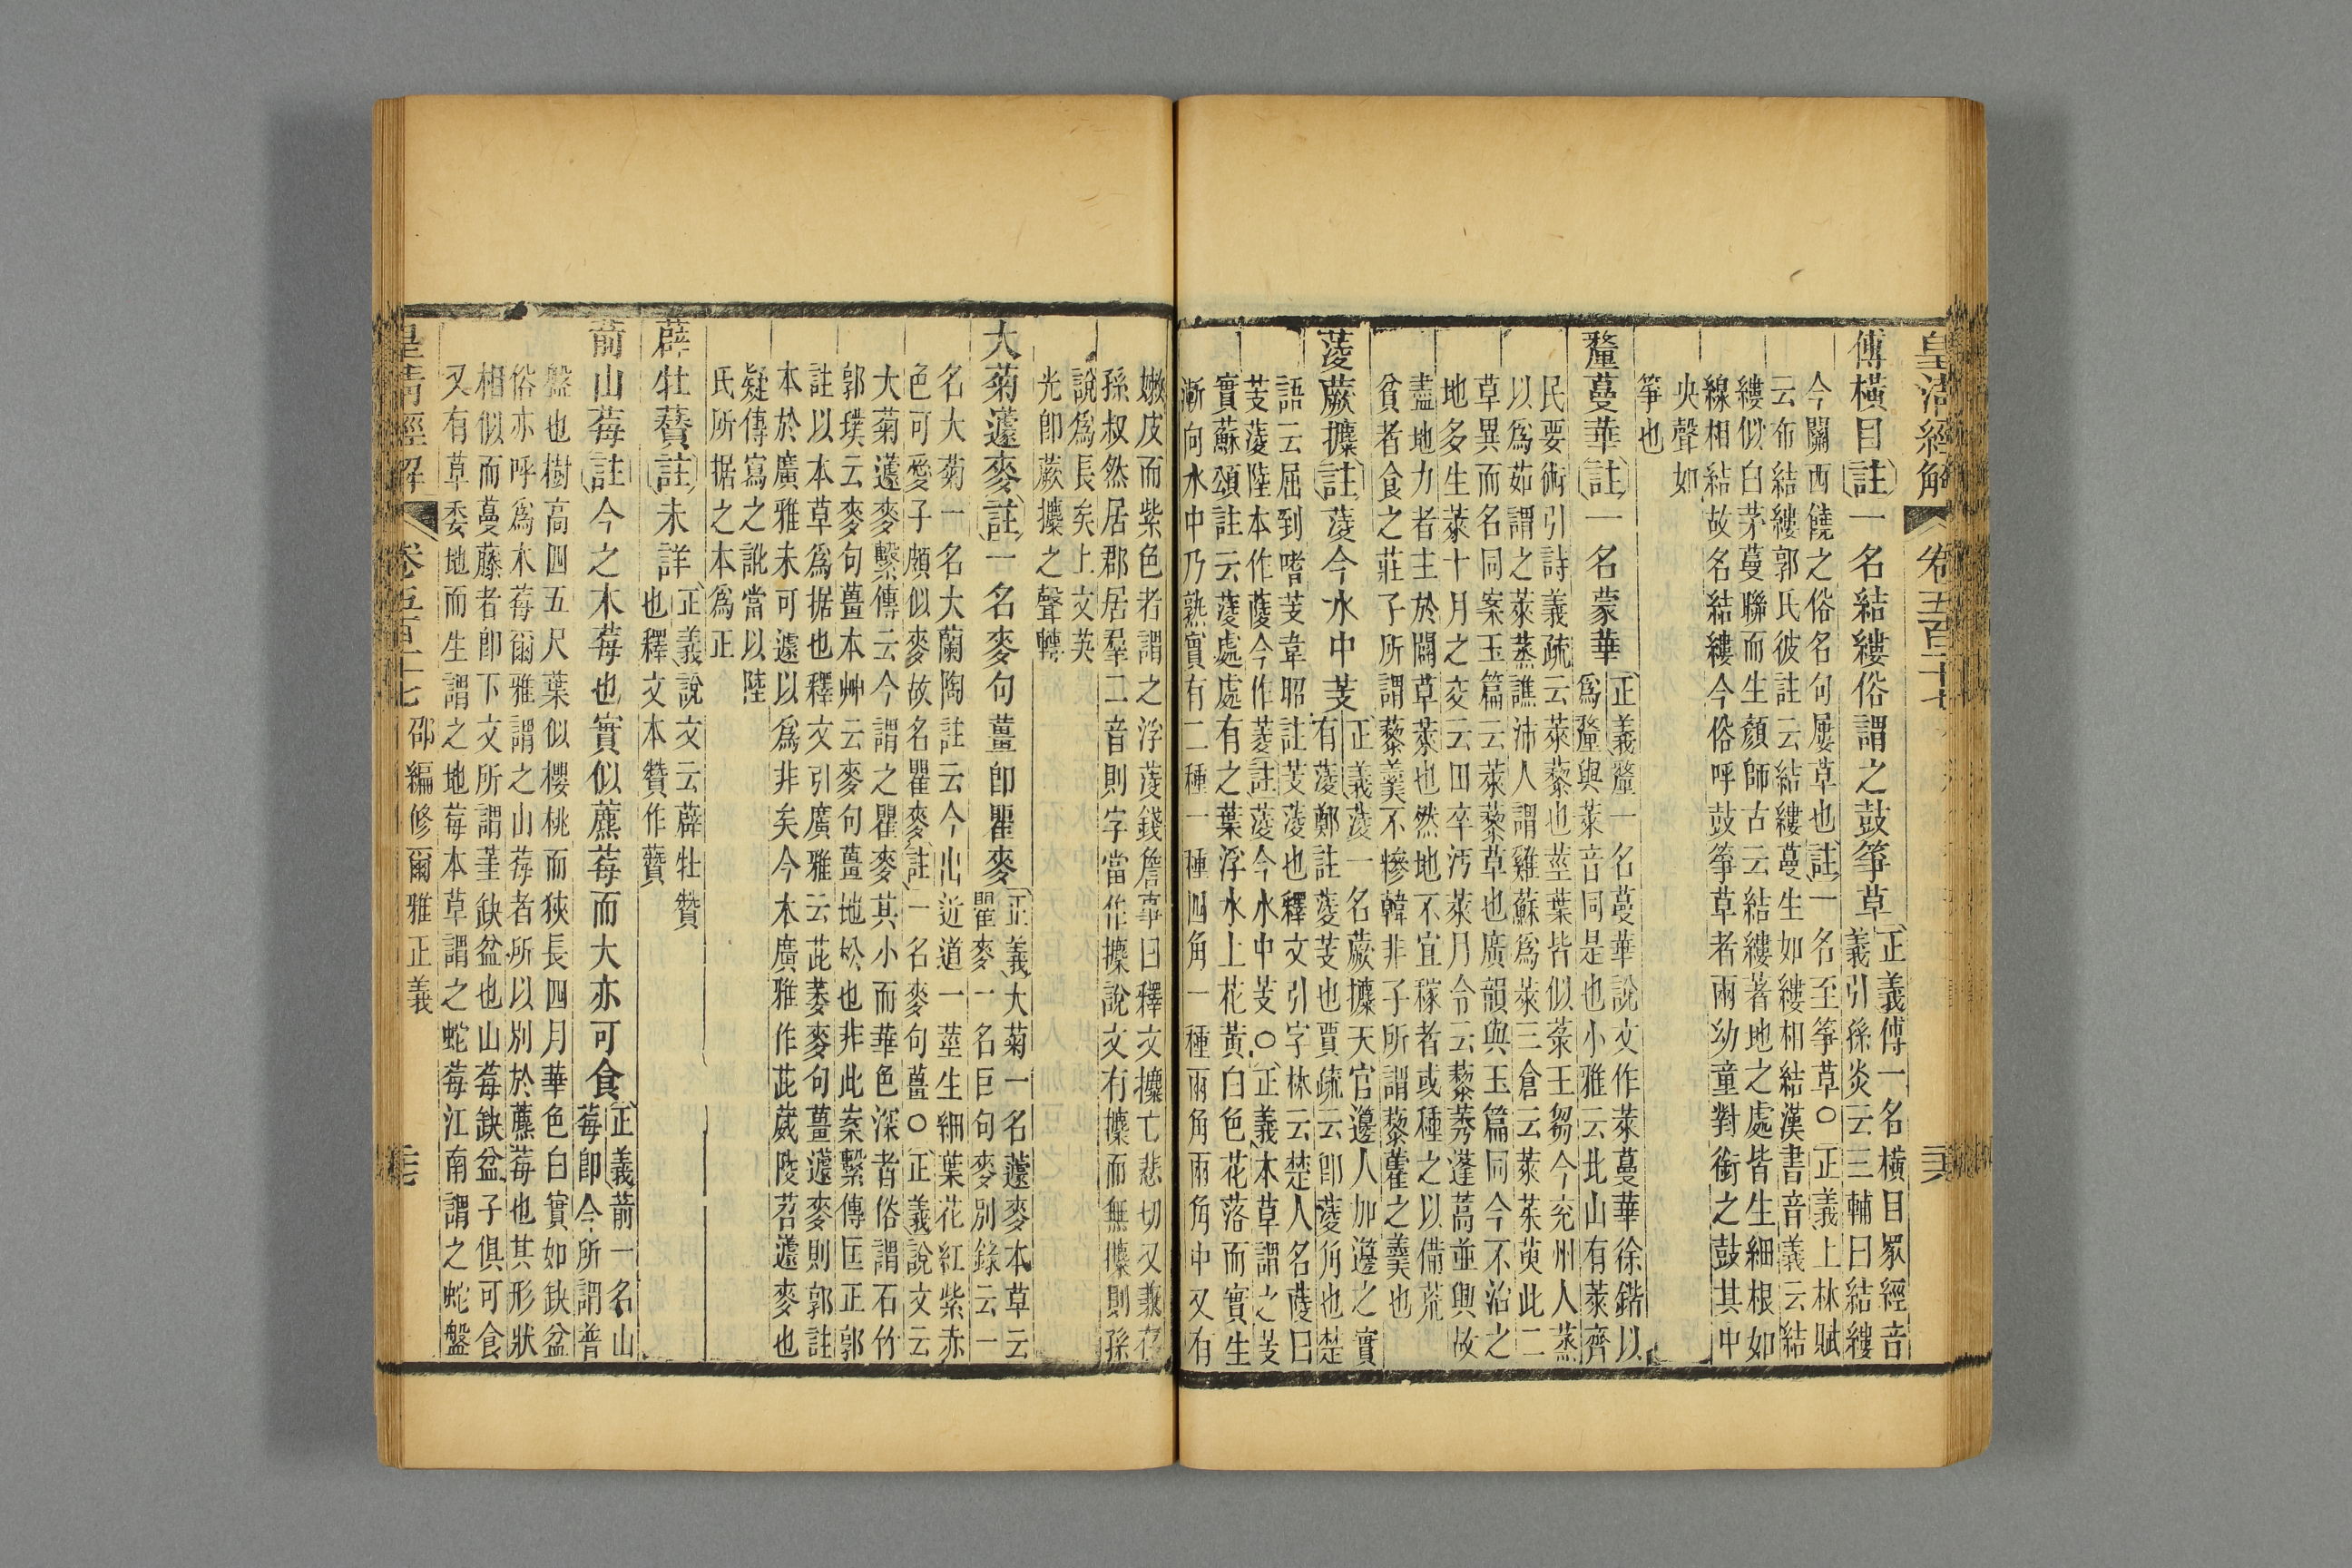 皇清經解 卷五百二十七
傅橫目註一名結縷俗謂之鼓箏草正義傅一名橫目眾經音
義引孫炎云三輔曰結縷
今關西饒之俗名句屢草也註一名至箏草○正義上林賦
云布結縷郭氏彼註云結縷蔓生如縷相結漢書音義云結
縷似白茅蔓聯而生顏師古云結縷著地之處皆生細根如
線相結故名結縷今俗呼鼓箏草者兩幼童對銜之鼓其中
央聲如
箏也
釐蔓華註一名蒙華正義釐一名蔓華說文作萊蔓華徐鍇以
為釐與萊音同是也小雅云北山有萊齊
民要術引詩義疏云萊藜也莖葉皆似菉王芻今兖州人蒸
以為茹謂之萊蒸譙沛人謂雞蘇為萊三倉云萊茱萸此二
草異而名同案玉篇云萊藜草也廣韻與玉篇同今不治之
地多生萊十月之交云田卒汚萊月令云藜莠蓬蒿並興故
盡地力者主於闢草萊也然地不宜稼者或種之以備荒
貧者食之莊子所謂藜羹不糝韓非子所謂藜藿之羹也
蔆蕨攗註蔆今水中芰正義蔆一名蕨攗天官邊人加邊之實
有蔆鄭註蔆芰也賈疏云卽蔆角也楚
語云屈到嗜芰韋昭註芰蔆也釋文引字林云楚人名蔆曰
芰蔆陸本作蔆今作菱註蔆今水中芰○正義本草謂之芰
實蘇頌註云蔆處處有之葉浮水上花黃白色花落而實生
漸向水中乃熟實有二種一種四角一種兩角兩角中又有
嫩皮而紫色者謂之浮蔆錢詹事曰釋文攗亡悲切又羕存
孫叔然居郡居羣二音則字當作攈說文有攈而無攗則孫
說為長矣上文英
光卽蕨攗之聲轉
大菊蘧麥註一名麥句薑卽瞿麥正義大菊一名蘧麥本草云
瞿麥一名巨句麥別錄云一
名大菊一名大蘭陶註云今出近道一莖生細葉花紅紫赤
色可愛子頗似麥故名瞿麥註一名麥句薑○正義說文云
大菊蘧麥繫傳云今謂之瞿麥其小而華色深者俗謂石竹
郭璞云麥句薑本艸云麥句薑地松也非此案繫傳匡正郭
註以本草為据也釋文引廣雅云茈萎麥句薑蘧麥則郭註
本於廣雅未可遽以為非矣今本廣雅作茈葳陵苕蘧麥也
疑傳寫之訛當以陸
氏所据之本為正
薜牡䔖註未詳正義說文云薜牡䔖
也釋文本贊作䔖
葥山莓註今之木莓也實似藨莓而大亦可食正義葥一名山
莓卽今所謂普
盤也樹高四五尺葉似櫻桃而狹長四月華色白實如缺盆
俗亦呼為木莓爾雅謂之山莓者所以別於藨莓也其形狀
相似而蔓藤者卽下文所謂堇缺盆也山莓缺盆子俱可食
又有草委地而生謂之地莓本草謂之蛇莓江南謂之蛇盤
皇清經解 卷五百二十七 邵編修爾雅正義